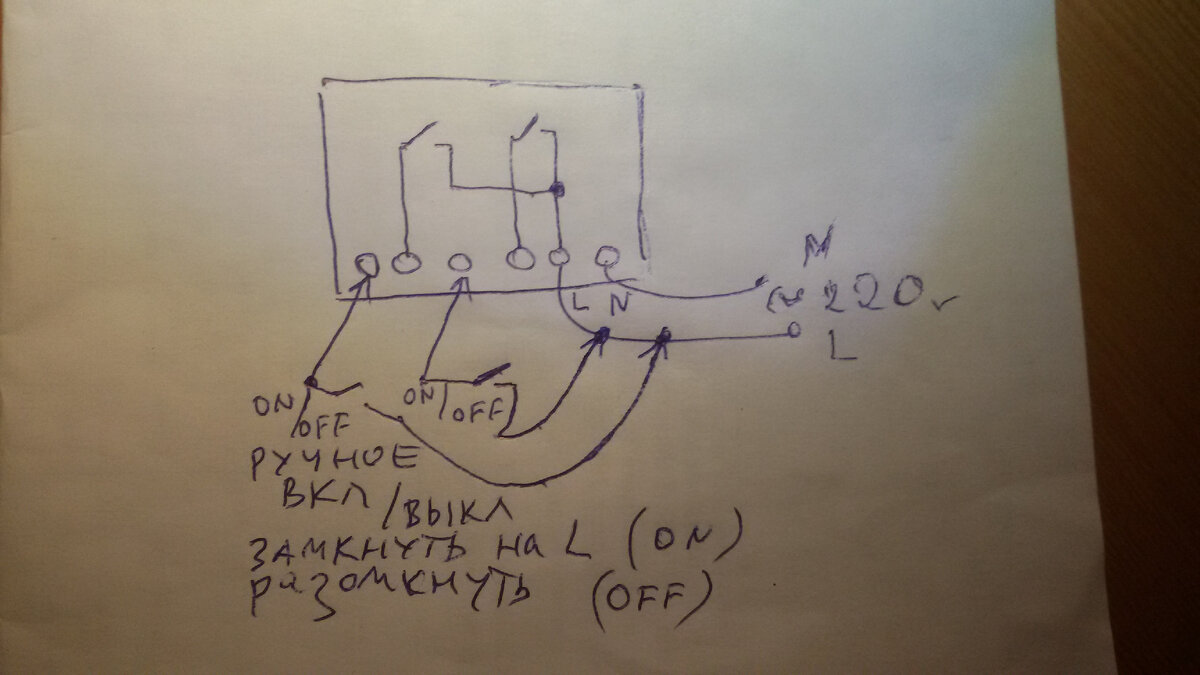 L N
N
~ 220v
L
ON/OFF
ON/OFF
РУЧНОЕ
ВКЛ/ВЫКЛ
ЗАМКНУТЬ на L (ON)
РаЗОМКНУТЬ (OFF)